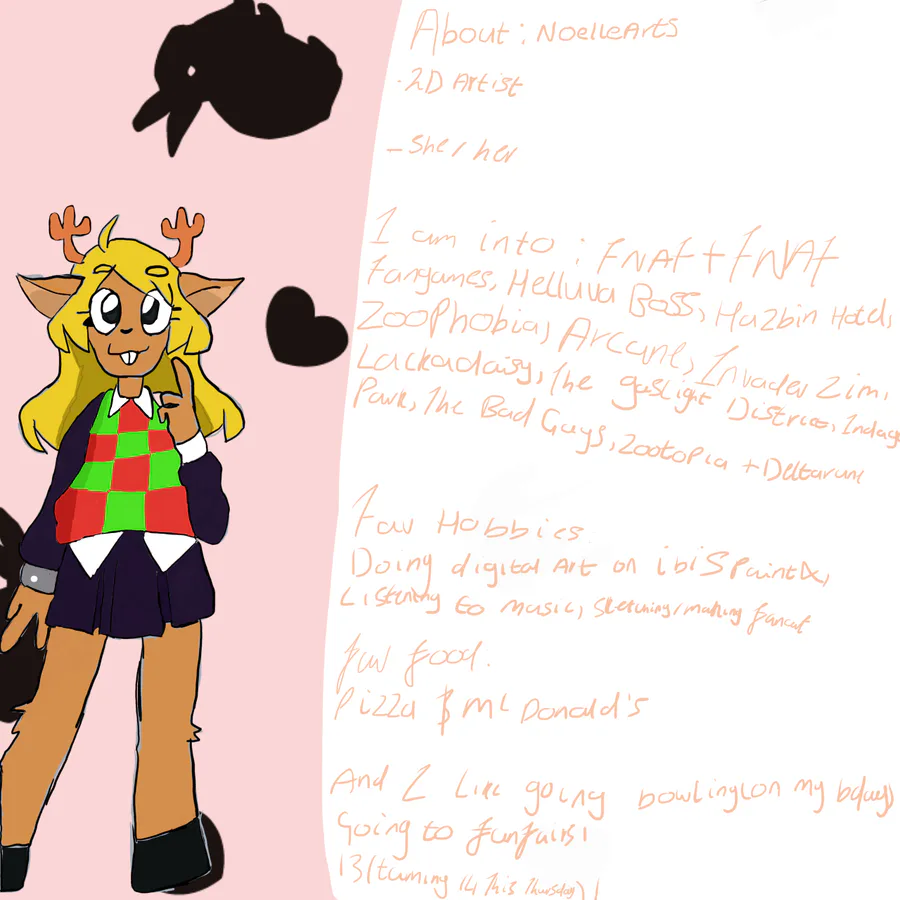 About: NoelleArts
·2D Artist
- She / her
I am into : FNAF + FNAF
Fangames, Helluva Boss, Hazbin Hotel,
ZooPhobia, Arcane, Invader Zim,
Lackadaisy, The gaslight District, Indigo
Park, The Bad Guys, Zootopia + Deltarune
Fav Hobbies
Doing digital Art on ibisPaintX,
Listening to music, Sketching/making fanart
fav food.
Pizza & McDonald's
And I Like going bowling(on my bday)
Going to funfairs!
13(turning 14 This Thursday)!